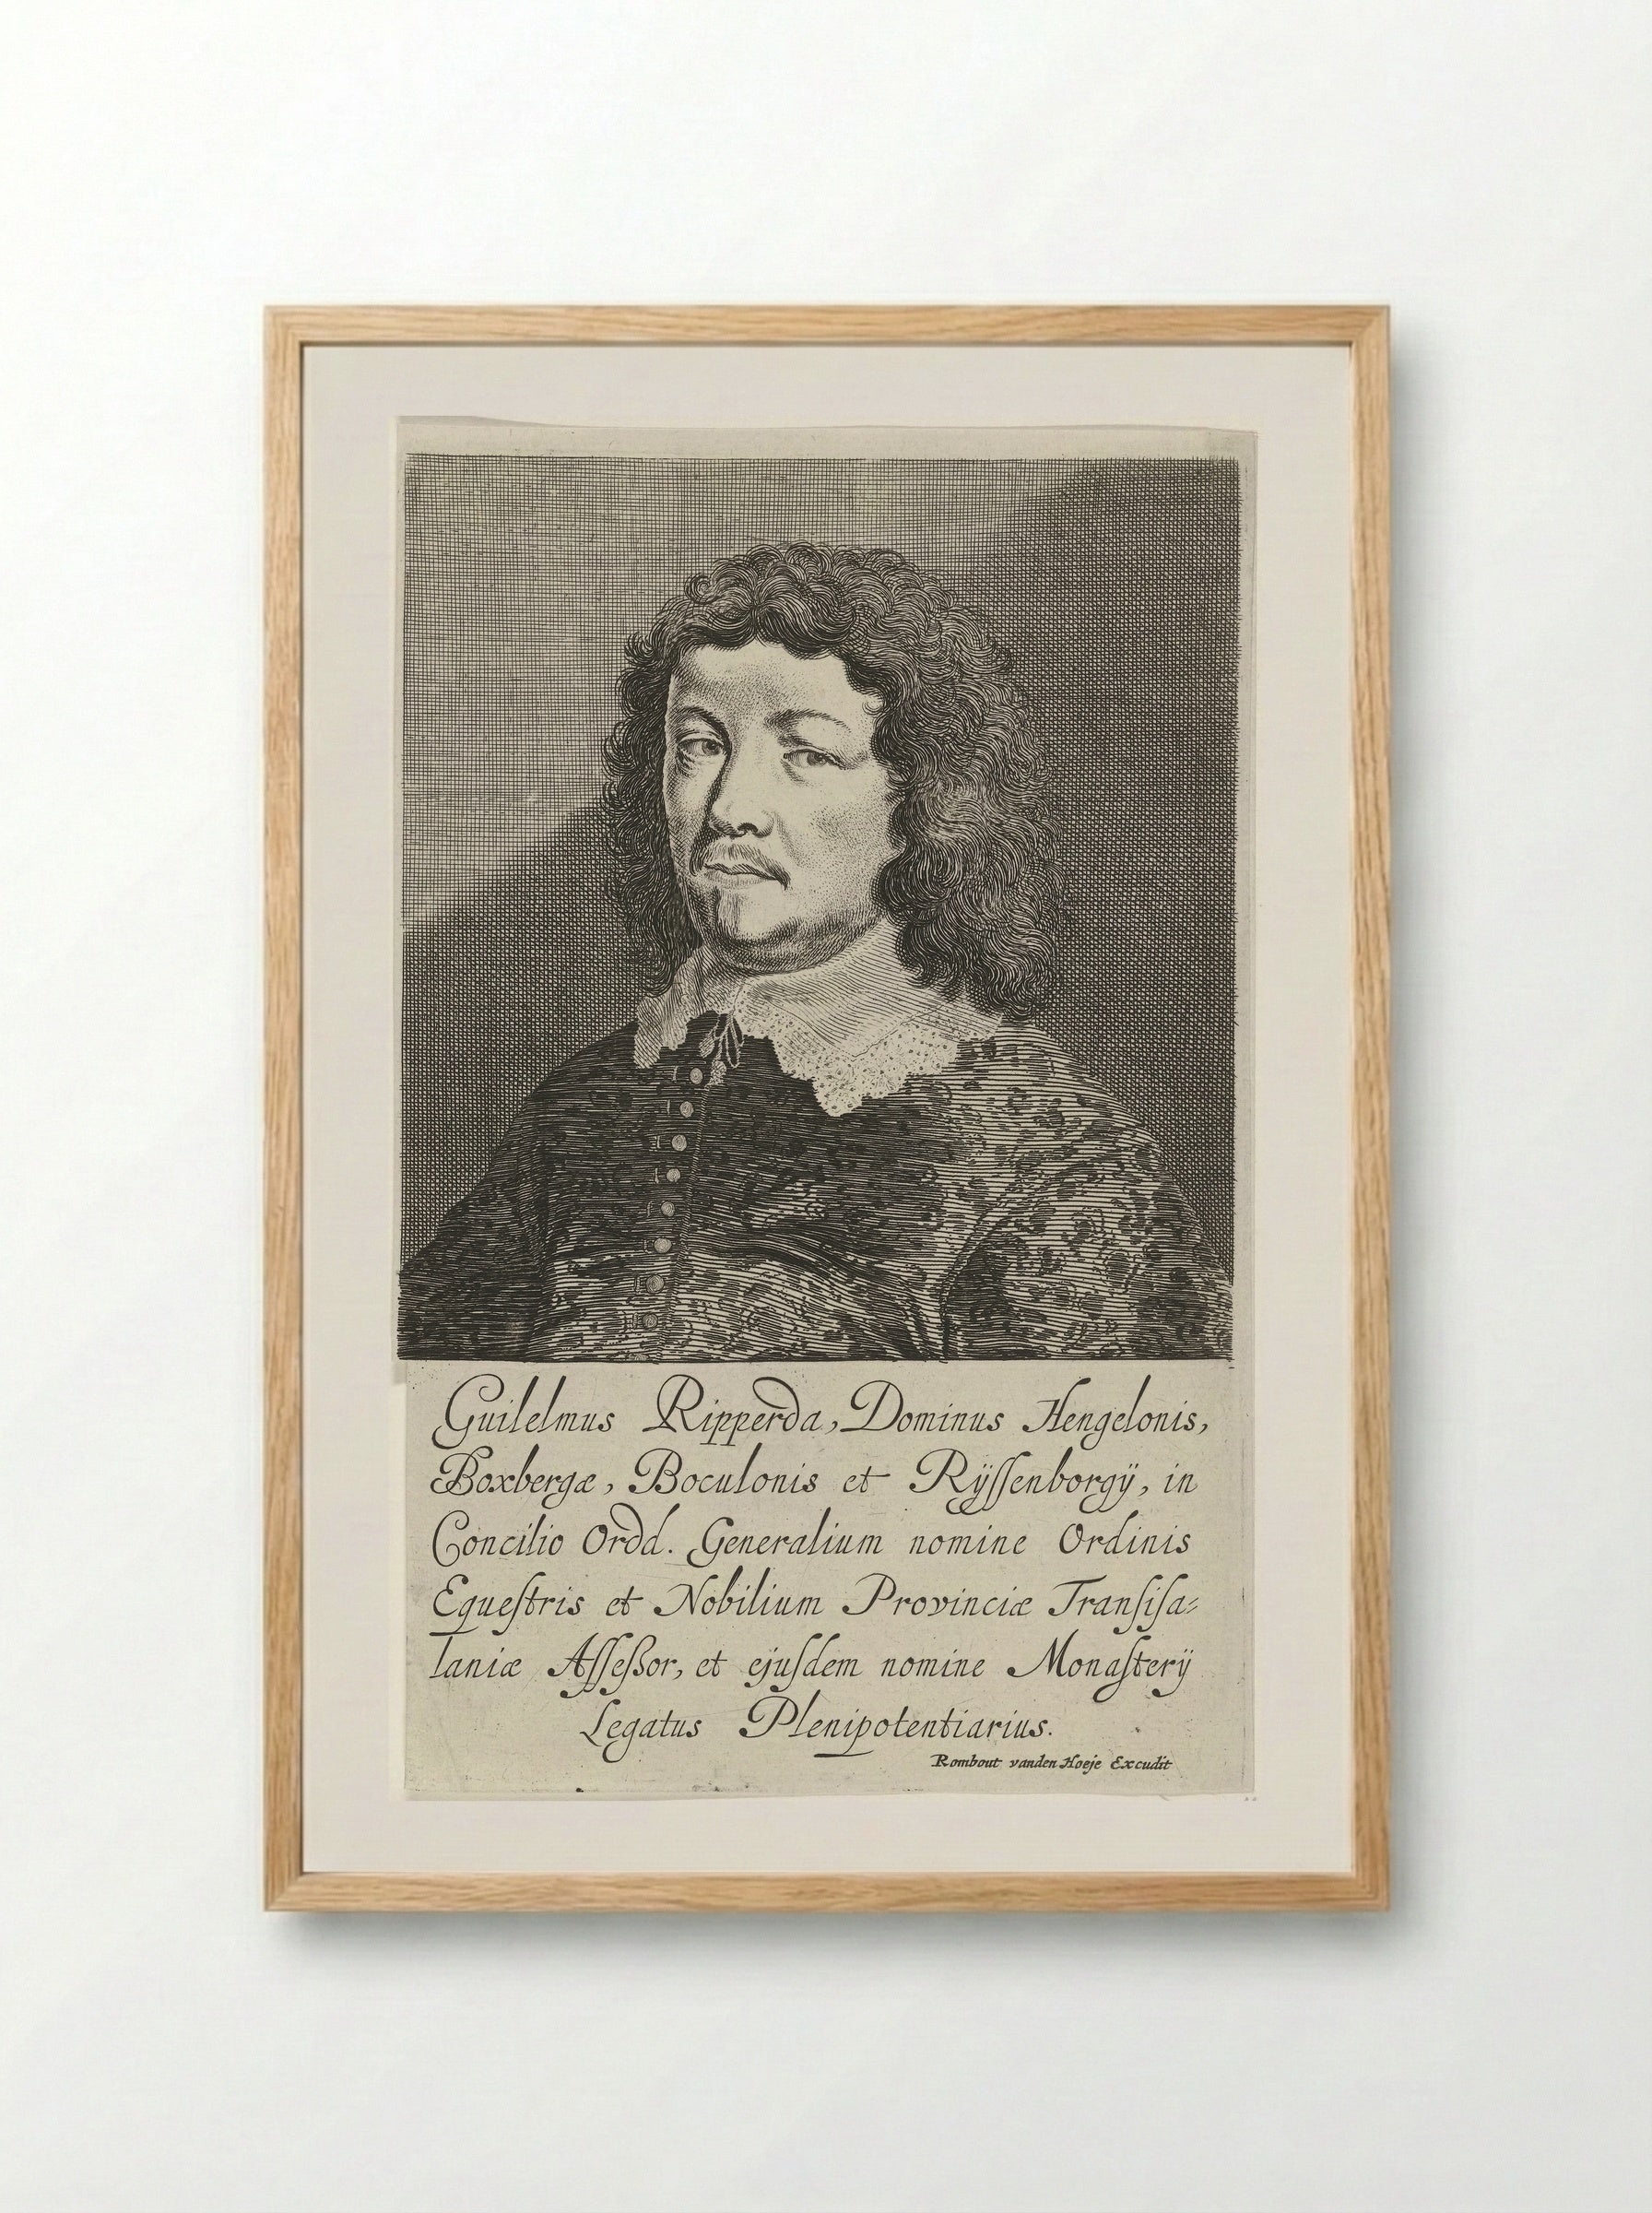 Guilelmus Ripperda, Dominus Hengelonis,
Boxbergæ, Boculonis et Rÿſſenborgÿ, in
Concilio Ordd. Generalium nomine Ordinis
Equeſtris et Nobilium Provinciæ Tranſiſa⸗
laniæ Aſſeßor, et ejuſdem nomine Monaſterÿ
Legatus Plenipotentiarius.
Rombout vanden Hoeje Excudit